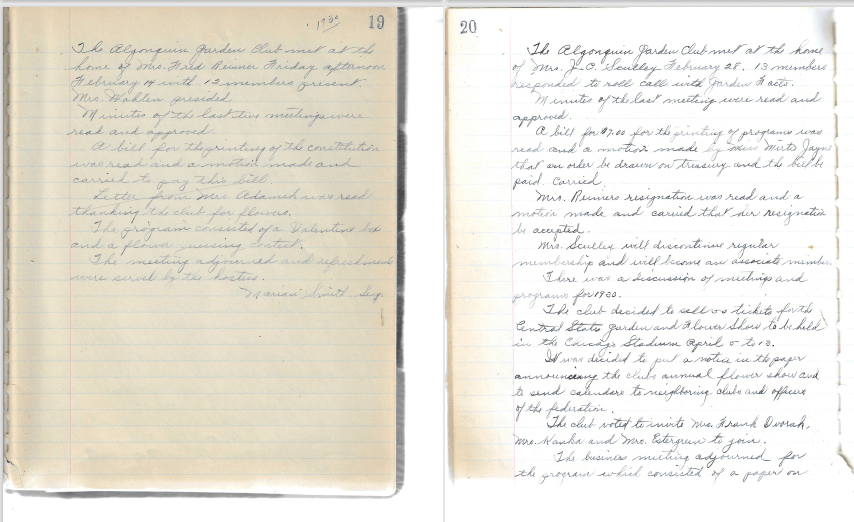 1930
19
The Algonquin Garden Club met at the
home of Mrs. Fred Reiner Friday afternoon
February 14 with 12 members present.
Mrs. Wahlen presided
Minutes of the last two meetings were
read and approved.
A bill for the printing of the constitution
was read and a motion made and
carried to pay this bill.
Letter from Mrs Adamek was read
thanking the club for flowers.
The program consisted of a Valentine box
and a flower guessing contest.
The meeting adjourned and refreshments
were served by the hostess.
Marian Smith
20
The Algonquin Garden Club met at the home
of Mrs. J.C. Sculley February 28. 13 members
responded to roll call with Garden Facts.
Minutes of the last meeting were read and
approved.
A bill for $7.00 for the printing of programs was
read and a motion made by Miss Mirta Jayne
that an order be drawn on treasury and the bill be
paid. Carried.
Mrs. Reiners resignation was read and a
motion made and carried that her resignation
be accepted.
Mrs Sculley will discontinue regular
membership and will become an associate member.
There was a discussion of meetings and
programs for 1930.
The club decided to sell tickets for the
Central States Garden and Flower Show to be held
in the Chicago Stadium April 5 to 13.
It was decided to put a notice in the paper
announcing the clubs annual flower show and
to send calendars to neighboring clubs and officers
of the federation.
The club voted to invite Mrs. Frank Dvorak,
Mrs. Kanka and Mrs. Estergren to join.
The business meeting adjourned for
the program which consisted of a paper on